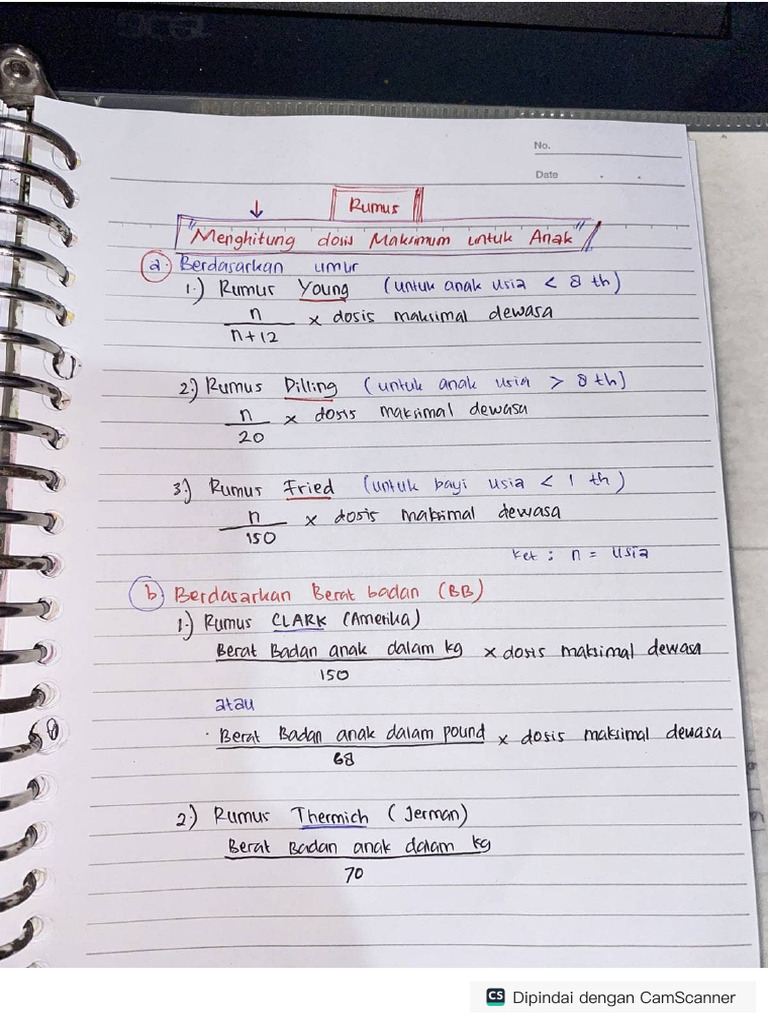 No.
Date
Rumus
"Menghitung dosis Maksimum untuk Anak"
a. Berdasarkan umur
1.) Rumus Young (untuk anak usia < 8 th)
n
n+12 x dosis maksimal dewasa
2.) Rumus Dilling (untuk anak usia > 8 th)
n
20 x dosis maksimal dewasa
3.) Rumus Fried (untuk bayi usia < 1 th)
n
150 x dosis maksimal dewasa
Ket : n = usia
b. Berdasarkan Berat badan (BB)
1.) Rumus CLARK (Amerika)
Berat Badan anak dalam kg x dosis maksimal dewasa
150
atau
. Berat Badan anak dalam pound x dosis maksimal dewasa
68
2.) Rumus Thermich (Jerman)
Berat Badan anak dalam kg
70
CS Dipindai dengan CamScanner